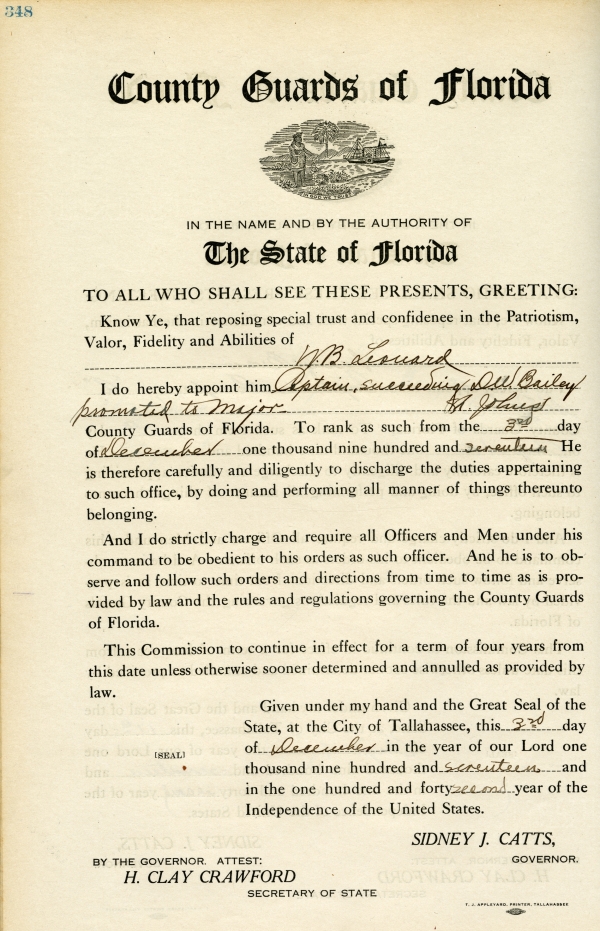 348
County Guards of Florida
IN GOD WE TRUST
IN THE NAME AND BY THE AUTHORITY OF
The State of Florida
TO ALL WHO SHALL SEE THESE PRESENTS, GREETING:
Know Ye, that reposing special trust and confidence in the Patriotism,
Valor, Fidelity and Abilities of
W. B. Leonard
I do hereby appoint him Captain, succeeding D.W. Bailey
promoted to Major St. Johns
County Guards of Florida. To rank as such from the 3rd day
of December one thousand nine hundred and seventeen He
is therefore carefully and diligently to discharge the duties appertaining
to such office, by doing and performing all manner of things thereunto
belonging.
And I do strictly charge and require all Officers and Men under his
command to be obedient to his orders as such officer. And he is to ob-
serve and follow such orders and directions from time to time as is pro-
vided by law and the rules and regulations governing the County Guards
of Florida.
This Commission to continue in effect for a term of four years from
this date unless otherwise sooner determined and annulled as provided by
law.
Given under my hand and the Great Seal of the
State, at the City of Tallahassee, this 3rd day
[SEAL] of December in the year of our Lord one
thousand nine hundred and seventeen and
in the one hundred and forty second year of the
Independence of the United States.
SIDNEY J. CATTS,
BY THE GOVERNOR. ATTEST: GOVERNOR.
H. CLAY CRAWFORD
SECRETARY OF STATE
T. J. APPLEYARD, PRINTER, TALLAHASSEE